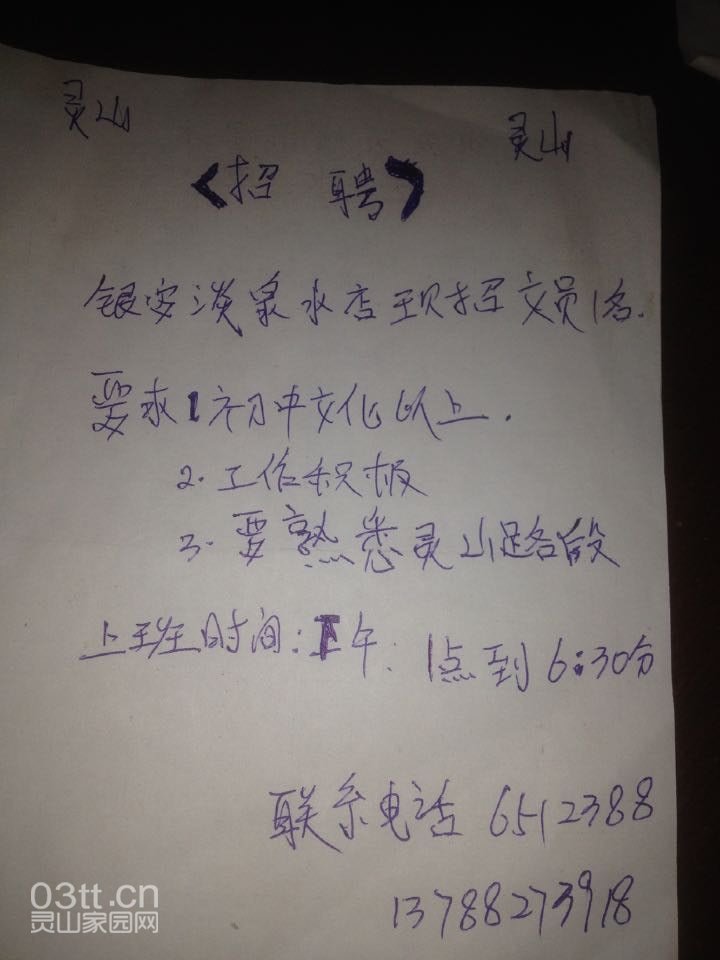 灵山 灵山
<招 聘>
银安淡泉水店现招文员1名.
要求1初中文化以上.
2.工作积极
3.要熟悉灵山路段
上班时间:下午:1点到6:30分
联系电话 6512388
13788273918
03tt.cn
灵山家园网